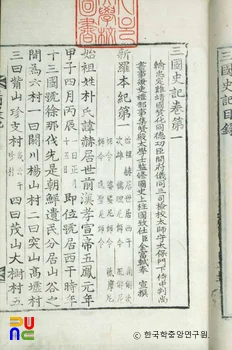 三國史記目錄
三國史記卷第一
輸忠定難靖國贊化同德功臣開府儀同三司檢校太師守太保門下侍中判尚
書事兼吏禮部事集賢殿大學士監修國史上柱國致仕臣金富軾奉 宣撰
新羅本紀第一
始祖姓朴氏諱赫居世前漢孝宣帝五鳳元年
甲子四月丙辰一曰正月十五日即位號居西干時年
十三國號徐那伐先是朝鮮遺民分居山谷之
間為六村一曰閼川楊山村二曰突山高墟村
三曰觜山珍支村或云干珍村四曰茂山大樹村五
PUNC
한국학중앙연구원